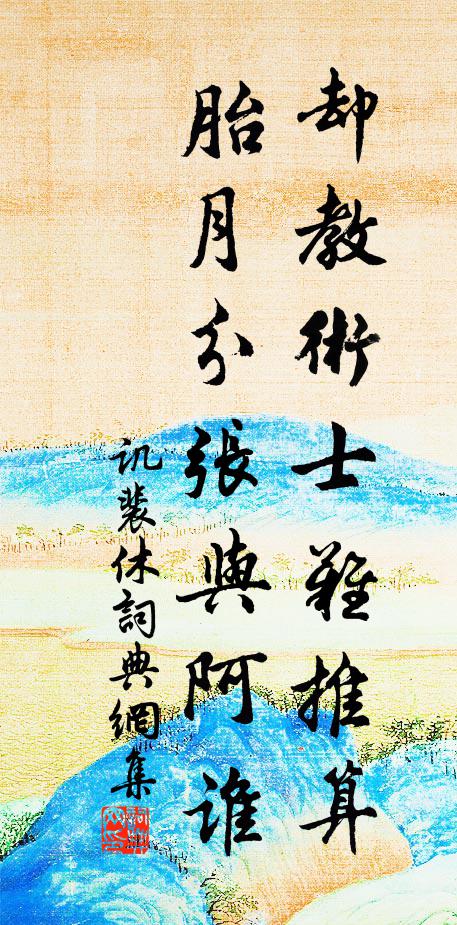 却教術士難推算
胎月分張與阿誰
訊裴休詞典網集